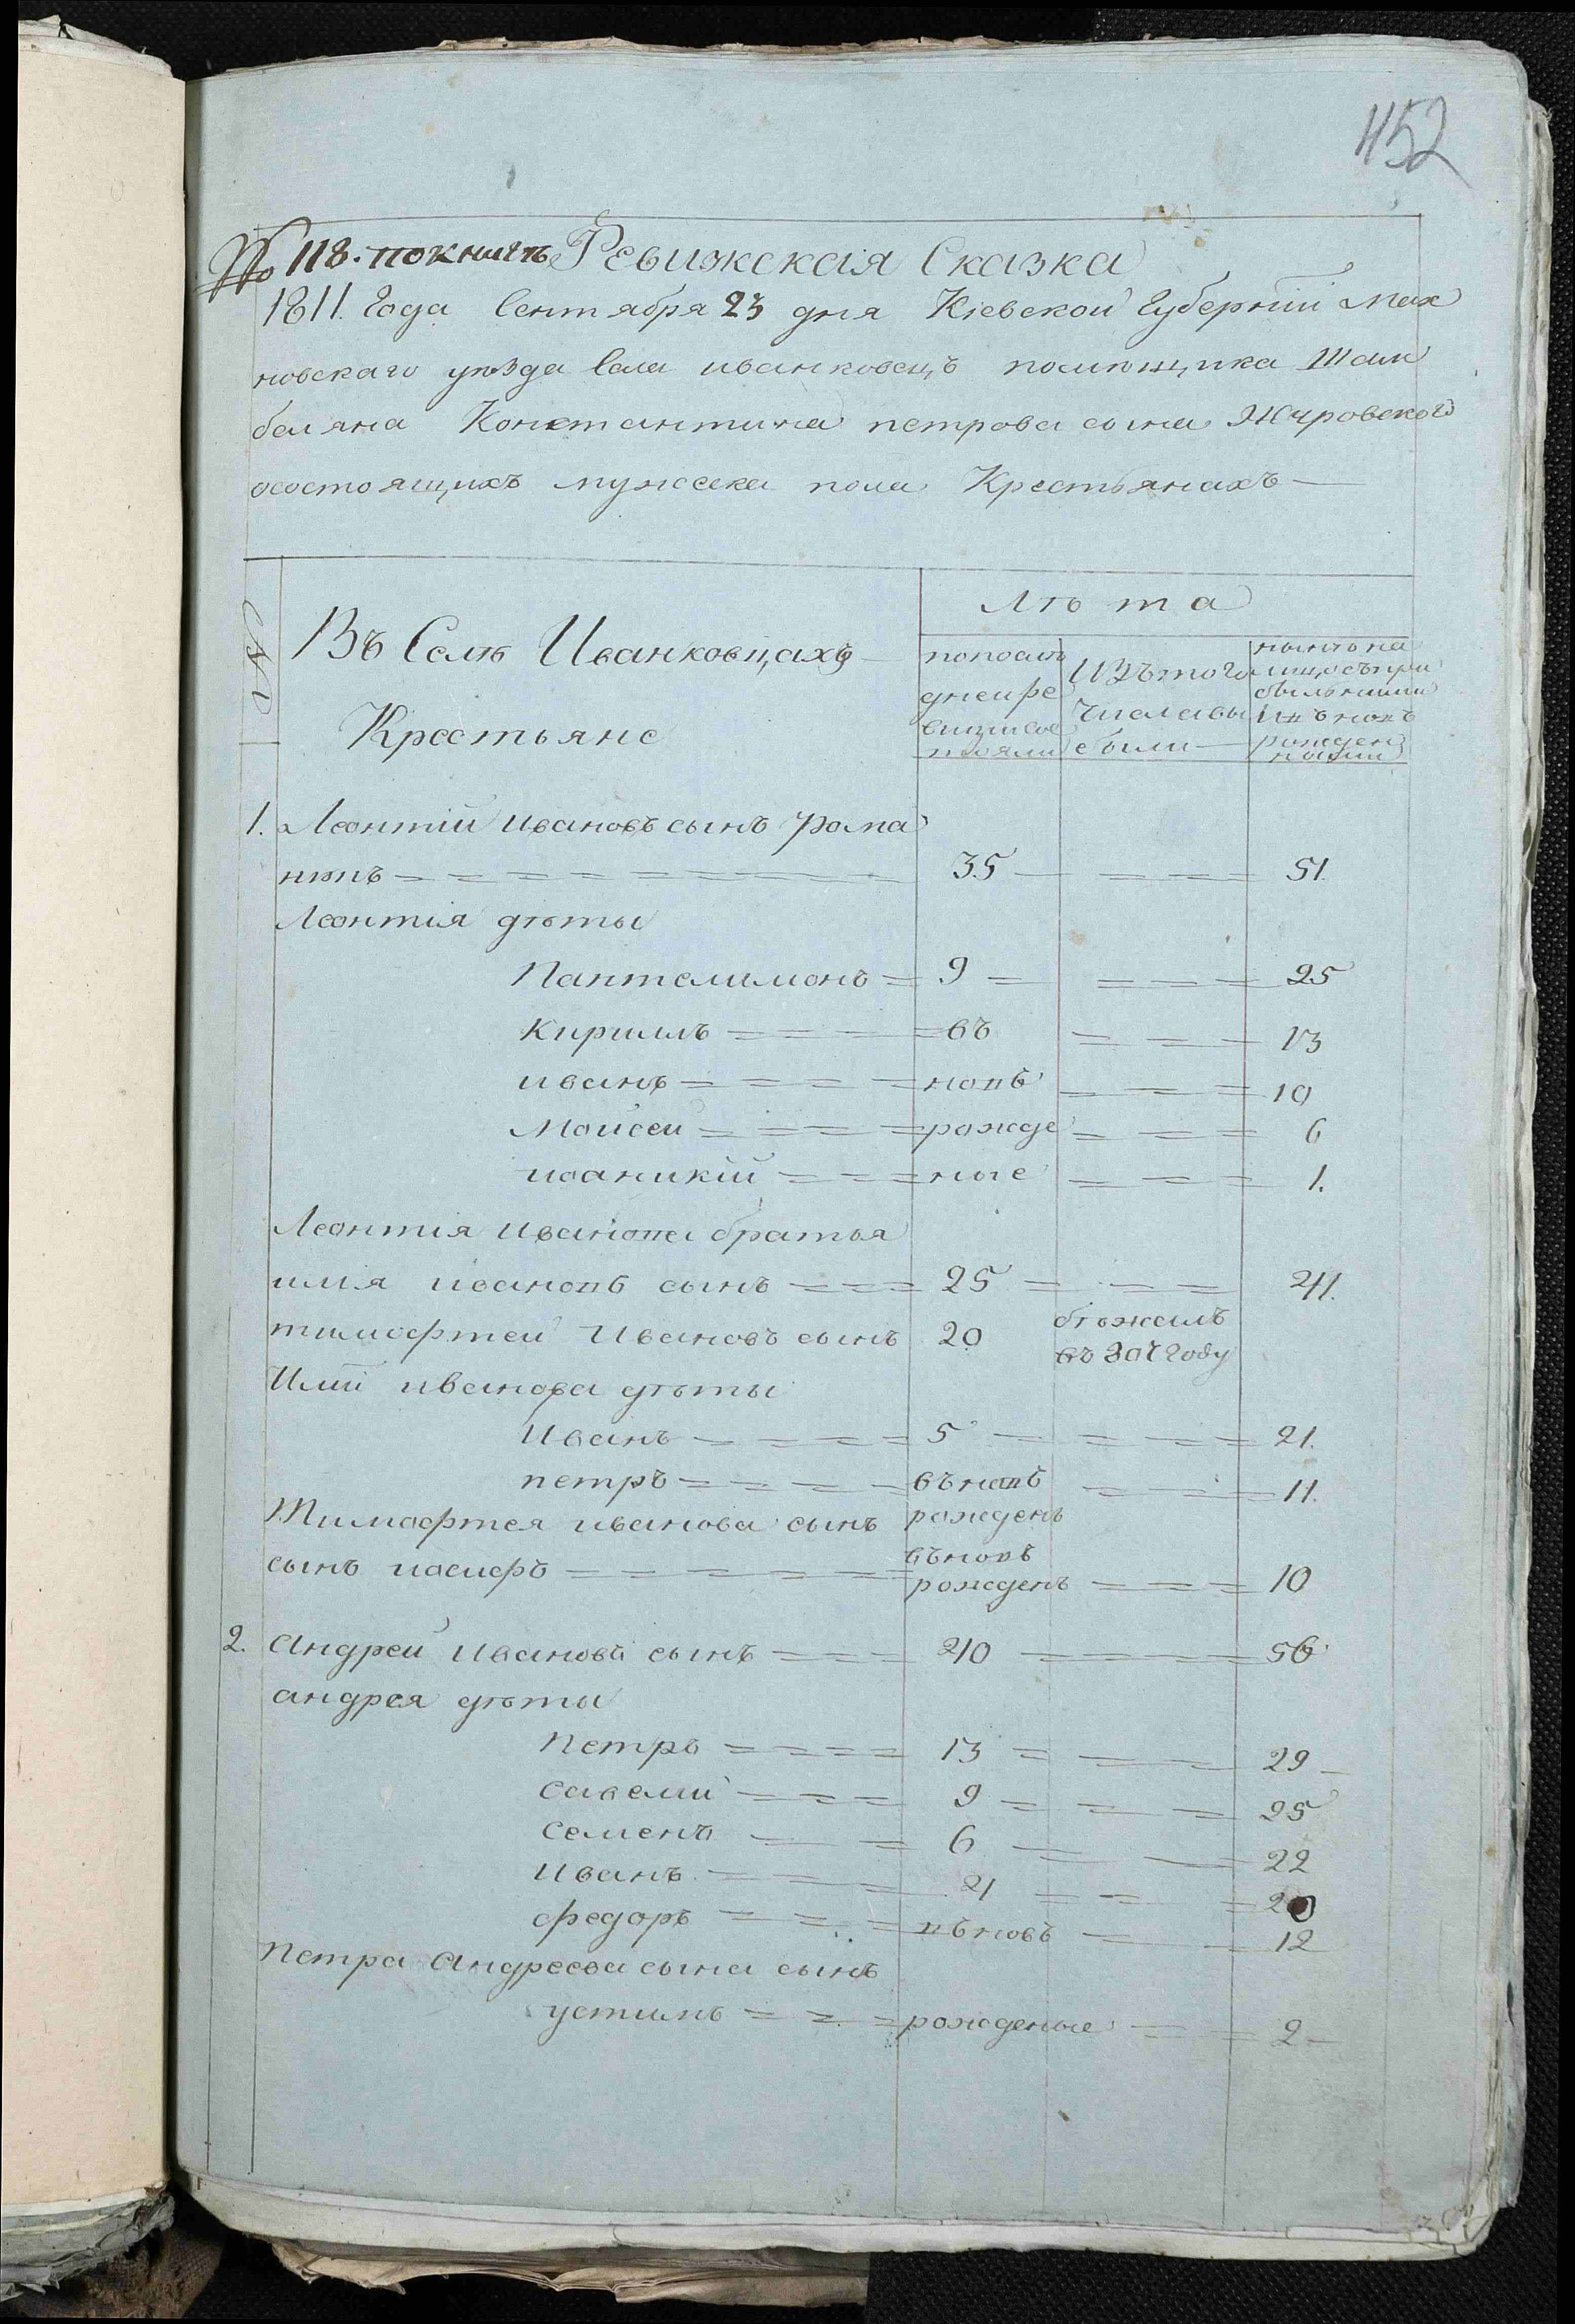 452
№ 118. по книгѣ Ревижская Сказка
1811. Года Сентября 23 дня Кіевской Губерніи Мах
новскаго уѣзда Села иванковецъ помѣщика Шам
беляна Константина петрова сына Журовского
осостоящихъ мужеска пола Крестьянахъ
№
Въ Селѣ Иванковцахъ
Крестьяне
Лѣта
попослѣ
дней ре
визіи сос
тояли
Изътого
Числа вы
были
нынѣ на
лицо съ при
былыми
и вновь
рожден
ными
1. Леонтій ивановъ сынъ рома
нюкъ 35 51.
Леонтія дѣты
Пантелимонъ 9 25
Кириллъ въ 13
иванъ новѣ 10
Мойсей рожде 6
иоаникій ные 1.
Леонтія иванова братья
илія ивановъ сынъ 25 41.
тимофтей Ивановъ сынъ 20 бѣжалъ
въ 807 Году
Иліи иванова дѣты
Иванъ 5 21.
петръ въновѣ 11.
рожденъ
Тимофтея иванова сынъ
сынъ иосифъ въновѣ
рожденъ 10
2. Андрей Ивановъ сынъ 40 56
андрея дѣты
Петръ 13 29
савелій 9 25
семенъ 6 22
Иванъ 4 20
федоръ въновѣ 12
Петра Андреева сына сынъ
устимъ рожденые 2